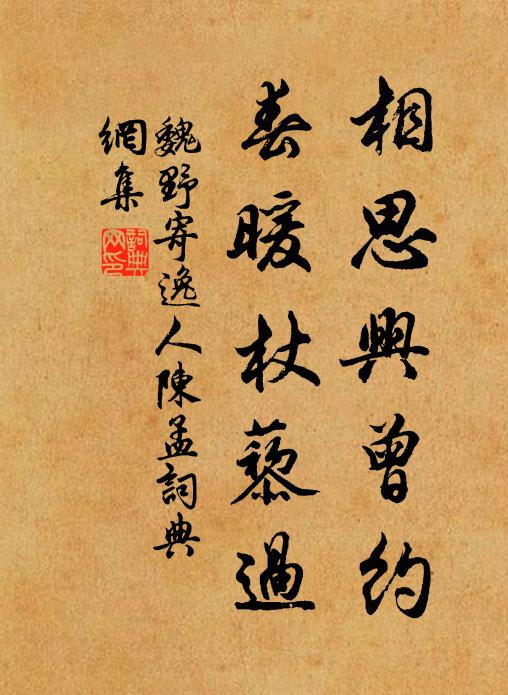 相思興曾約
春暖杖藜過
魏野寄逸人陳孟詞典
網集
詞典
网印